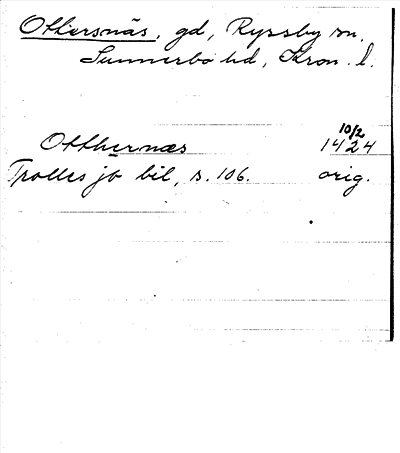 Ottersnäs, gd, Ryssby sn,
Sunnerbo hd, Kron. l.
Otthernæs 10/2 1424
Trolles jb bil, s. 106. orig.